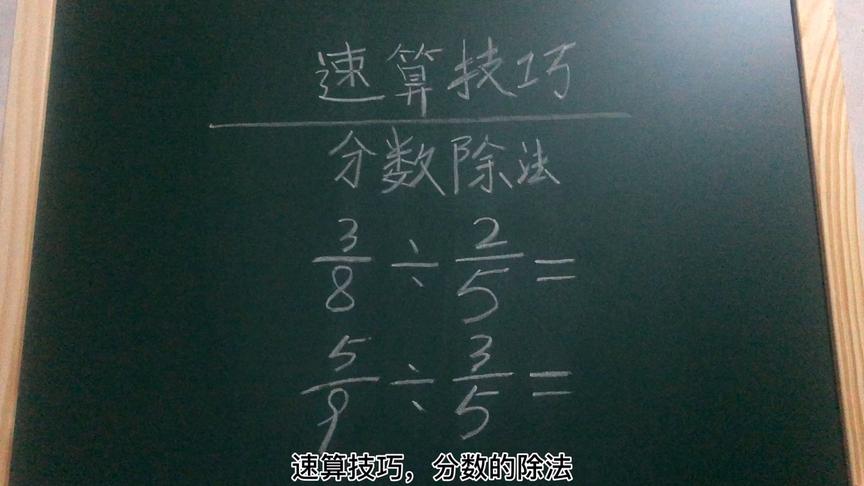 速算技巧
分数除法
3/8 ÷ 2/5 =
5/9 ÷ 3/5 =
速算技巧，分数的除法